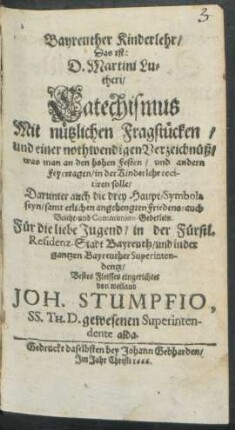 3
Bayreuther Kinderlehr/
Das ist:
D. Martini Lu-
theri/
Catechismus
Mit nützlichen Fragstücken/
und einer nothwendigen Verzeichnüß/
was man an den hohen Festen/ und andern
Feyertagen/ in der Kinderlehr reci-
tiren solle/
Darunter auch die drey Haupt-Symbola
seyn/ samt etlichen angehengten Friedens: auch
Beicht- und Communion-Gebetlein.
Für die liebe Jugend/ in der Fürstl.
Residenz-Stadt Bayreuth/ und in der
gantzen Bayreuther Superinten-
dentz/
Bestes Fleisses eingerichtet
von weiland
JOH. STUMPFIO,
SS. TH. D. gewesenen Superinten-
dente alda.
Gedruckt daselbsten bey Johann Gebharden/
Im Jahr Christi